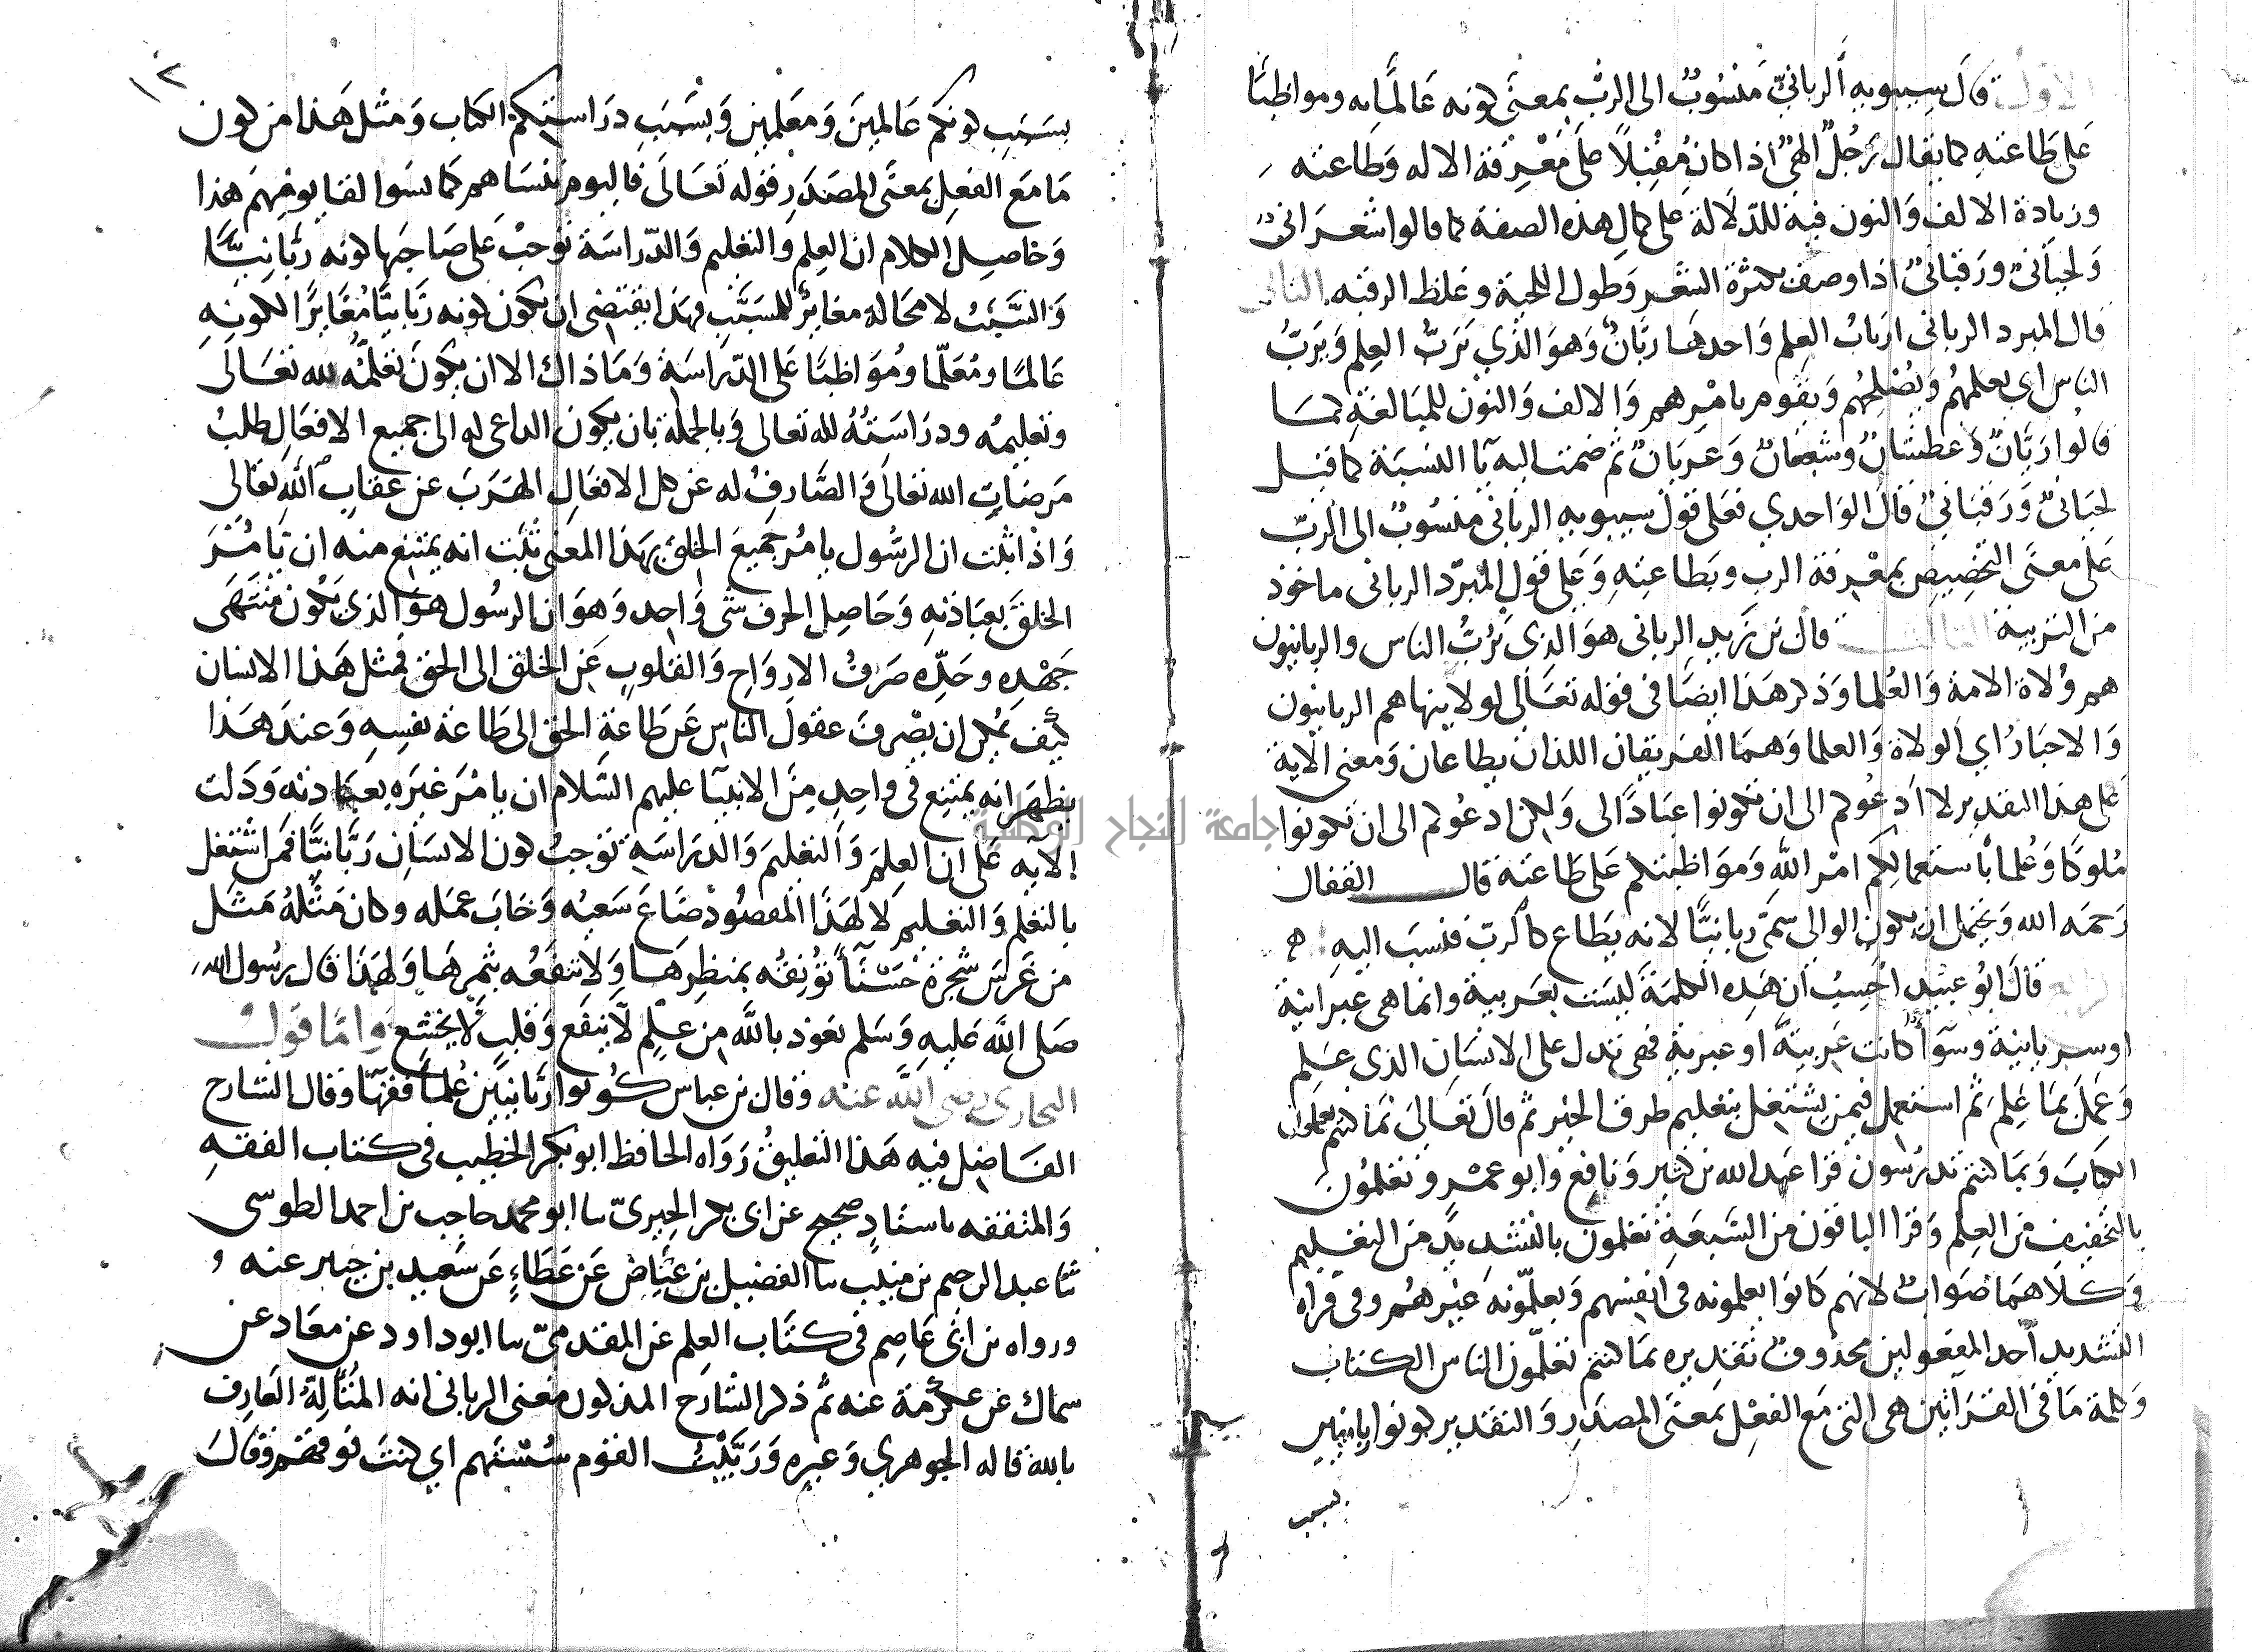 الاول قال سيبويه الرباني منسوب الى الرب بمعنى كونه عالما به ومواظبا
على طاعته كما يقال رجل الهي اذا كان مقبلا على معرفة الاله وطاعته
وزيادة الالف والنون فيه للدلالة على كمال هذه الصفة كما قالوا شعراني
ولحياني ورقباني اذا وصف بكثرة الشعر وطول اللحية وغلظ الرقبه الثاني
قال المبرد الرباني ارباب العلم واحدها ربان وهو الذي يرب العلم ويرب
الناس اي يعلمهم ويصلحهم ويقوم بامرهم والالف والنون للمبالغة كما
قالوا ربان وعطشان وشبعان وعريان ثم ضمت اليه يا النسبة كما قيل
لحياني ورقباني قال الواحدي فعلى قول سيبويه الرباني منسوب الى الرب
على معنى التخصيص بمعرفة الرب وبطاعته وعلى قول المبرد الرباني ماخوذ
من التربية الثالث قال بن زيد الرباني هو الذي يرب الناس والربانيون
هم ولاة الامة والعلما وذكر هذا ايضا في قوله تعالى لولا ينهاهم الربانيون
والاحبار اي الولاة والعلما وهما الفريقان اللذان يطاعان ومعنى الاية
على هذا التقدير لا ادعوكم الى ان تكونوا عبادا لي ولكن ادعوكم الى ان تكونوا
ملوكا وعلما باستعمالكم امر الله ومواظبتكم على طاعته قال القفال
رحمه الله ويحتمل ان يكون الوالي سمي ربانيا لانه يطاع كالرب فنسب اليه
الرابع قال ابو عبيد احسب ان هذه الكلمة ليست بعربية وانما هي عبرانية
او سريانية وسوآ كانت عربية او عبرية فهي تدل على الانسان الذي علم
وعمل بما علم ثم استعمل فيمن يشتغل بتعليم طرق الخير ثم قال تعالى بما كنتم تعلمون
الكتاب وبما كنتم تدرسون قرا عبد الله بن كثير ونافع وابو عمرو تعلمون
بالتخفيف من العلم وقرا الباقون من السبعة تعلمون بالتشديد من التعليم
وكلاهما صواب لانهم كانوا يعلمونه في انفسهم ويعلمونه غيرهم وفي قراه
التشديد احد المفعولين محذوف تقديره بما كنتم تعلمون الناس الكتاب
وكلمة ما في القراتين هي التي مع الفعل بمعنى المصدر والتقدير كونوا ربانيين
بسبب
١٢
بسبب كونكم عالمين ومعلمين وبسبب دراستكم الكتاب ومثل هذا من كون
ما مع الفعل بمعنى المصدر قوله تعالى فاليوم ننساهم كما نسوا لقا يومهم هذا
وحاصل الكلام ان العلم والتعليم والدراسة توجب على صاحبها كونه ربانيا
والسبب لا محالة مغاير للمسبب فهذا يقتضي ان يكون كونه ربانيا مغايرا لكونه
عالما ومعلما ومواظبا على الدراسة وما ذاك الا ان يكون تعلمه لله تعالى
وتعليمه ودراسته لله تعالى وبالجملة بان يكون الداعي له الى جميع الافعال طلب
مرضات الله تعالى والصارف له عن كل الافعال الهرب عن عقاب الله تعالى
واذا ثبت ان الرسول يامر جميع الخلق بهذا المعنى ثبت انه يمتنع منه ان يامر
الخلق بعبادته وحاصل الحرف شى واحد وهو ان الرسول هو الذي يكون منتهى
جهده وجده صرف الارواح والقلوب عن الخلق الى الحق فمثل هذا الانسان
كيف يمكن ان يصرف عقول الناس عن طاعة الحق الى طاعة نفسه وعند هذا
يظهر انه يمتنع في واحد من الانبيآ عليهم السلام ان يامر غيره بعبادته ودلت
الآيه على ان العلم والتعليم والدراسه توجب كون الانسان ربانيا فمن اشتغل
بالتعلم والتعليم لا لهذا المقصود ضاع سعيه وخاب عمله وكان مثله مثل
من غرس شجرة حسنآ تونقه بمنظرها ولا تنفعه بثمرها ولهذا قال رسول الله
صلى الله عليه وسلم نعوذ بالله من علم لا ينفع وقلب لا يخشع واما قول
البخاري رضي الله عنه وقال بن عباس كونوا ربانيين علمآ فقهآ وقال الشارح
الفاضل فيه هذا التعليق رواه الحافظ ابو بكر الخطيب في كتاب الفقه
والمتفقه باسناد صحيح عن ابي بكر الحيري سا ابو محمد حاجب بن احمد الطوسي
ثنا عبد الرحيم بن منيب سا الفضيل بن عياض عن عطاء عن سعيد بن جبير عنه
ورواه بن ابي عاصم في كتاب العلم عن المقدمي سا ابو داود عن معاذ عن
سماك عن عكرمة عنه ثم ذكر الشارح المذكور معنى الرباني انه المتاله العارف
بالله قاله الجوهري وغيره ورببت القوم سستهم اي كنت فوقهم وقال